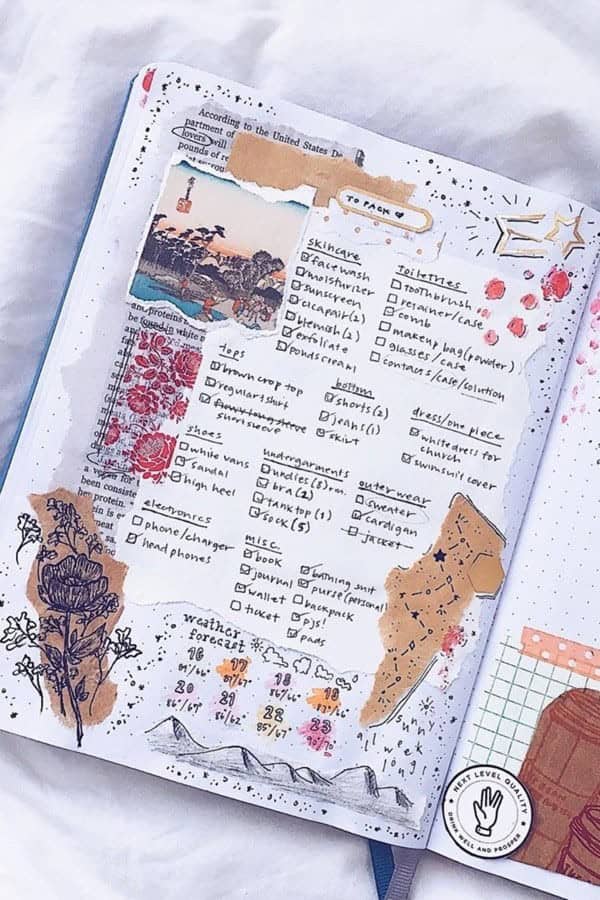 According to the United States De
partment of
lovers will
pounds of re
TO PACK
skincare
facewash
moisturizer
sunscreen
cicapair(2)
blemish(2)
exfoliate
ponds cream
Toiletries
toothbrush
retainer/case
comb
makeup bag(powder)
glasses/case
contacts/case/solution
Tops
brown crop top
regular tshirt
funny long sleeve
short sleeve
bottom
shorts(2)
jeans(1)
skirt
dress/one piece
white dress for
church
swimsuit cover
shoes
white vans
sandal
high heel
undergarments
undies(8)
bra(2)
tank top(1)
sock(5)
outerwear
sweater
cardigan
jacket
electronics
phone/charger
headphones
misc.
book
journal
wallet
ticket
bathing suit
purse(personal)
backpack
pjs!
pads
weather
forecast
16 17 18 19
20 21 22 23
86°/62° 85°/67° 90/70°
sunny
all week
long!
NEXT LEVEL QUALITY
DRINK WELL AND PROSPER